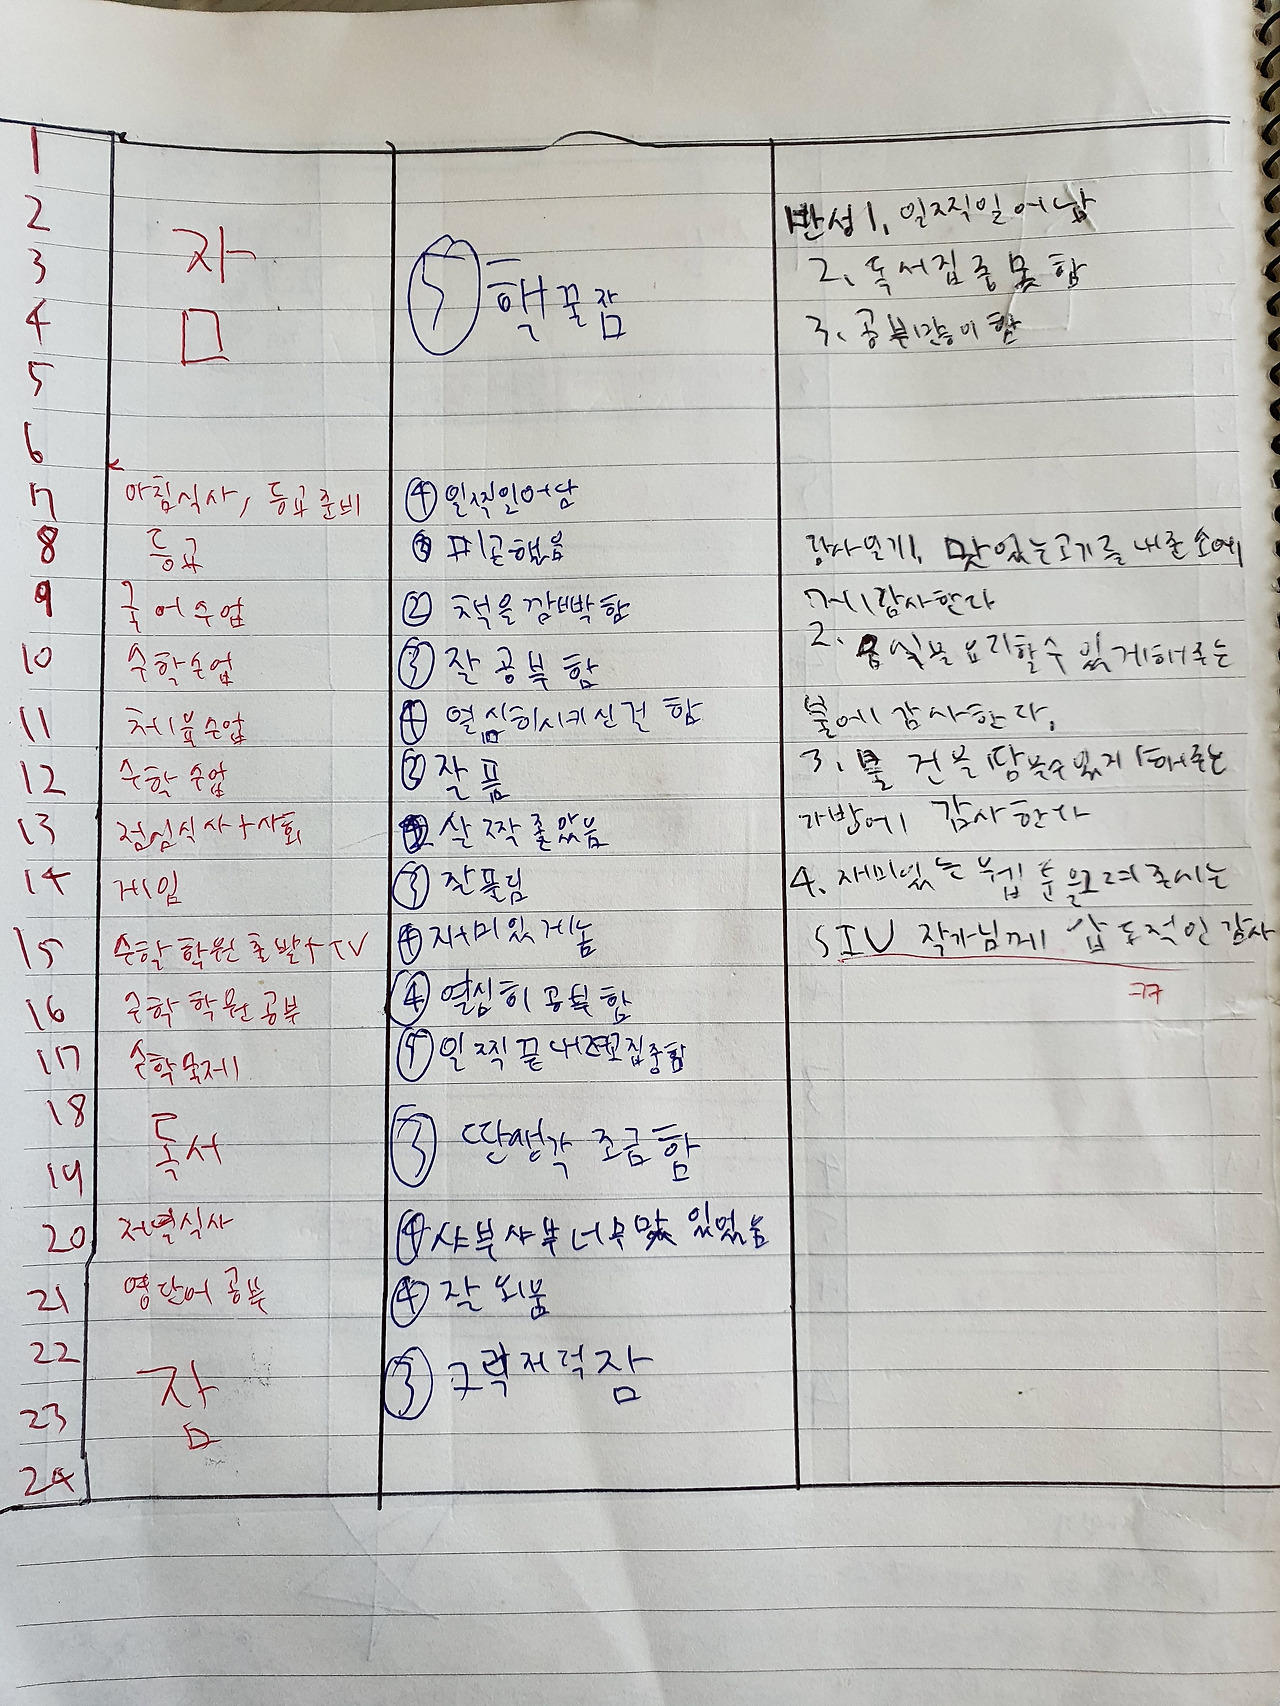 1
2
3
4
5
6
잠
⑤ 핵꿀잠
반성1. 일찍일어남
2. 독서집중못함
3. 공부많이함
7 아침식사, 등교준비 ④ 일찍일어남
8 등교 피곤했음
9 국어수업 ② 책을깜빡함
10 수학수업 ③ 잘공부함
11 체육수업 ④ 열심히시키신건 함
12 수학수업 ③ 잘품
13 점심식사+사회 살짝졸았음
14 게임 ③ 잘풀림
15 수학학원출발+TV ④ 재미있게놈
16 수학학원공부 ④ 열심히공부함
17 수학숙제 ⑤ 일찍끝내려고집중함
18
19
독서 ③ 딴생각 조금함
20 저녁식사 ④ 샤브샤브너무맛있었음
21 영단어공부 ④ 잘외움
22
23
24
잠 ③ 그럭저럭잠
감사일기1. 맛있는고기를내준소에
게감사한다
2. 음식을요리할수있게해주는
불에감사한다.
3. 물건을담을수있게해주는
가방에 감사한다
4. 재미있는웹툰을그려주시는
SIU 작가님께 압도적인감사